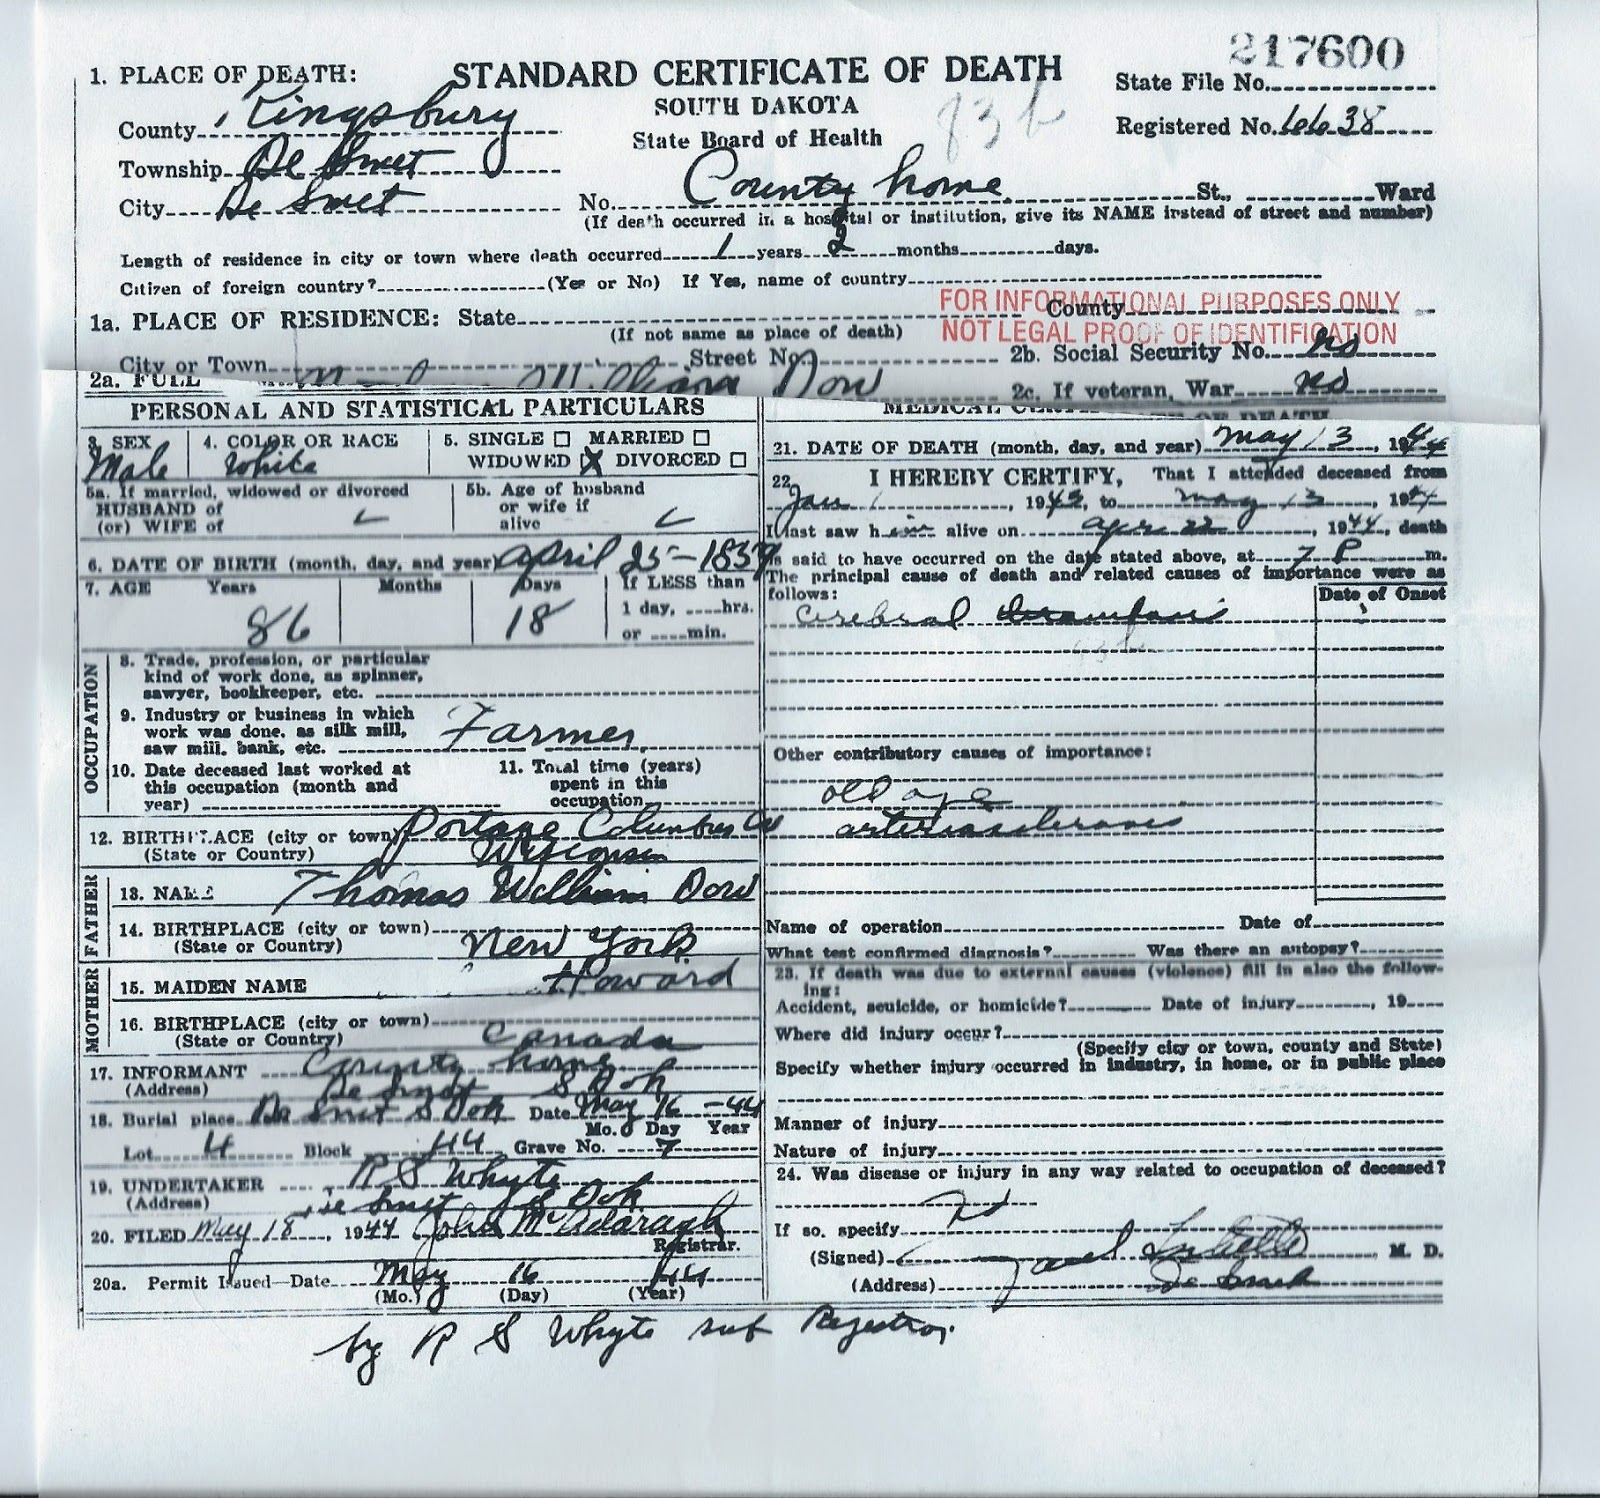 217600
1. PLACE OF DEATH: STANDARD CERTIFICATE OF DEATH State File No.
SOUTH DAKOTA
State Board of Health
83b
Registered No. 6638
County Kingsbury
Township De Smet
City De Smet No. County home St., Ward
(If death occurred in a hospital or institution, give its NAME instead of street and number)
Length of residence in city or town where death occurred 1 years 2 months days.
Citizen of foreign country? (Yes or No) If Yes, name of country
FOR INFORMATIONAL PURPOSES ONLY
NOT LEGAL PROOF OF IDENTIFICATION
1a. PLACE OF RESIDENCE: State County
(If not same as place of death)
City or Town Street No. 2b. Social Security No. no
2a. FULL William Dow 2c. If veteran, War no
PERSONAL AND STATISTICAL PARTICULARS
3. SEX Male
4. COLOR OR RACE White
5. SINGLE ☐ MARRIED ☐
WIDOWED ☒ DIVORCED ☐
5a. If married, widowed or divorced
HUSBAND of
(or) WIFE of
5b. Age of husband
or wife if
alive
6. DATE OF BIRTH (month, day, and year) April 25-1857
7. AGE Years Months Days If LESS than
86 18 1 day, hrs.
or min.
OCCUPATION
8. Trade, profession, or particular
kind of work done, as spinner,
sawyer, bookkeeper, etc.
9. Industry or business in which
work was done, as silk mill,
saw mill, bank, etc. Farmer
10. Date deceased last worked at
this occupation (month and
year)
11. Total time (years)
spent in this
occupation
12. BIRTHPLACE (city or town) Portage Columbus Co
(State or Country) Wisconsin
FATHER
13. NAME Thomas William Dow
14. BIRTHPLACE (city or town)
(State or Country) New York
MOTHER
15. MAIDEN NAME Howard
16. BIRTHPLACE (city or town)
(State or Country) Canada
17. INFORMANT County home
(Address) De Smet S Dak
18. Burial place De Smet S Dak Date May 16 -44
Mo. Day Year
Lot 4 Block 44 Grave No. 7
19. UNDERTAKER R S Whyte
(Address) De Smet S Dak
20. FILED May 18, 1944 John
Registrar.
20a. Permit Issued—Date May 16 44
(Mo.) (Day) (Year)
by R S Whyte sub Registrar
MEDICAL CERTIFICATE OF DEATH
21. DATE OF DEATH (month, day, and year) May 13, 1944
22. I HEREBY CERTIFY, That I attended deceased from
Jan 1, 1943, to May 13, 1944
I last saw him alive on April 22, 1944, death
is said to have occurred on the date stated above, at 7 P m.
The principal cause of death and related causes of importance were as
follows: Date of Onset
Cerebral
83b
Other contributory causes of importance:
old age
arteriosclerosis
Name of operation Date of
What test confirmed diagnosis? Was there an autopsy?
23. If death was due to external causes (violence) fill in also the follow-
ing:
Accident, seuicide, or homicide? Date of injury , 19
Where did injury occur?
(Specify city or town, county and State)
Specify whether injury occurred in industry, in home, or in public place
Manner of injury
Nature of injury
24. Was disease or injury in any way related to occupation of deceased?
If so, specify
(Signed) M. D.
(Address) De Smet